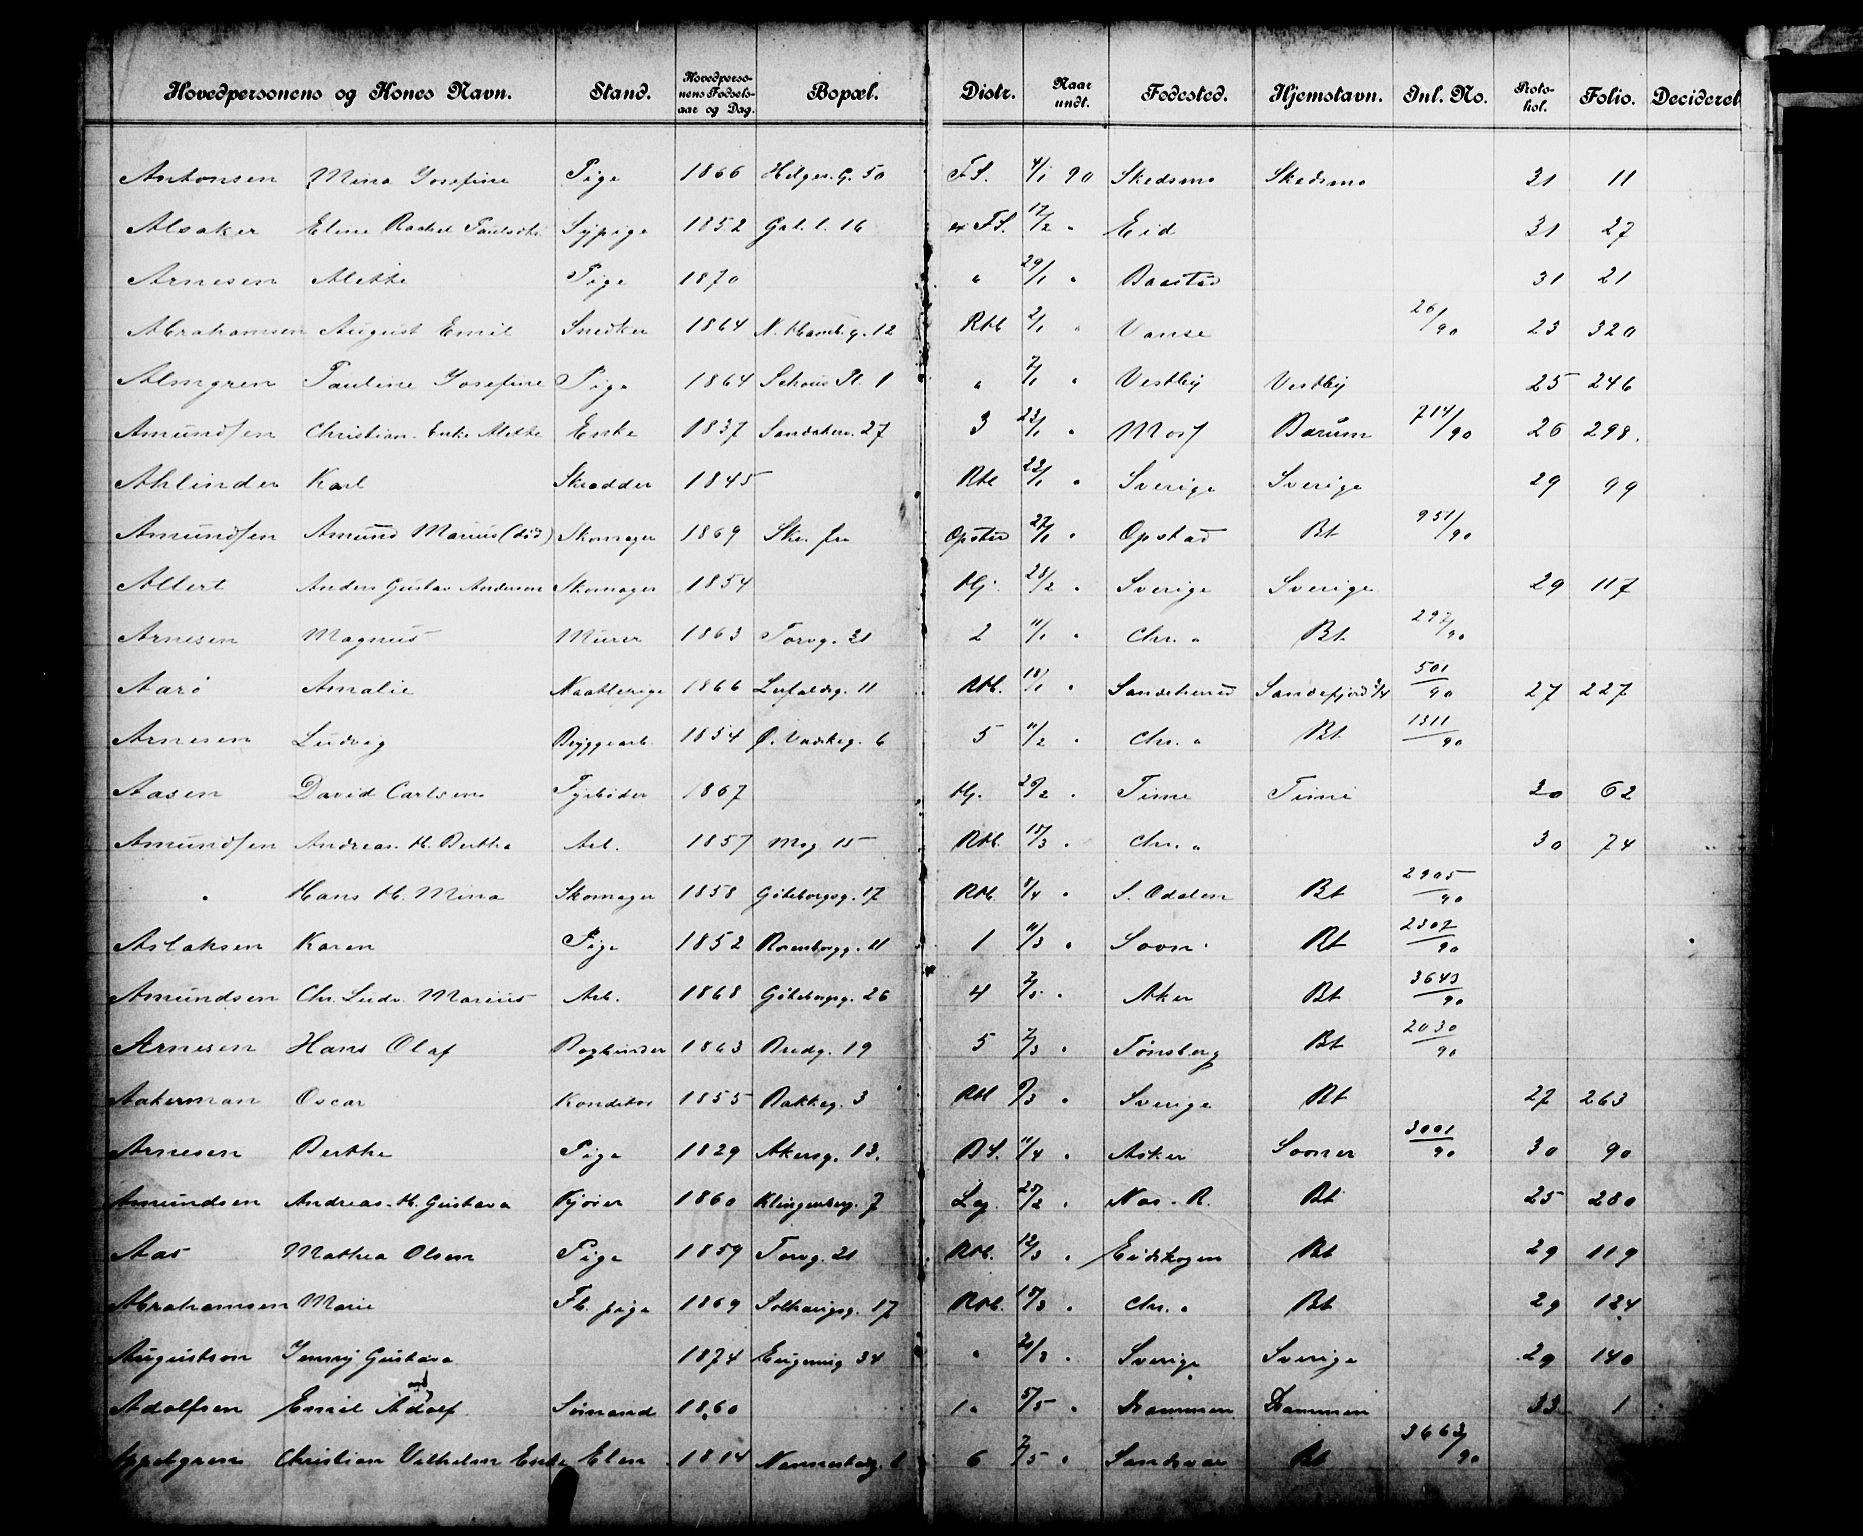 Hovedpersonens og Kones Navn. Stand. Hovedperso-nens Fødsels-aar og Dag. Bopæl. Distr. Naar undt. Fødested. Hjemstavn. Inl. No. Proto-kol. Folio. Decideret
Antonsen Mina Josefine Pige 1866 Helges. G. 50 F.S. 4/1 90 Skedsmo Skedsmo 31 11
Alsaker Eline Rachel Sypige 1852 16 F.S. 12/2 " Eid 31 27
Arnesen Alette Pige 1870 " 29/1 " Baastad 31 21
Abrahamsen August Emil Snedker 1864 12 Rbl 2/1 " Vanse 26/90 23 320
Almgren Pauline Josefine Pige 1864 Schous Pl. 1 " 7/1 " Vestby Vestby 25 246
Amundsen Christian. Enke Alette Enke 1837 Sandakerv. 27 3 23/1 " Moss Bærum 714/90 26 298.
Ahlinder Karl Skrædder 1845 Rbl 22/1 " Sverige Sverige 29 99
Amundsen Amund Marius (død) Skomager 1869 Opstad 27/1 " Opstad Bt 951/90
Allert Anders Gustav Anderson Skomager 1854 Hj. 28/2 " Sverige Sverige 29 117
Arnesen Magnus Murer 1863 Torvg. 21 2 11/1 " Chr. " Bt 297/90
Aarø Amalie 1866 11 Rbl. 18/1 " Sandeherred Sandefjord 3/4 501/90 27 227
Arnesen Ludvig Bryggearb. 1854 Ø. 6 5 11/2 " Chr. " Bt 1311/90
Aasen David Carlsen Fyrbøder 1867 Hj. 26/2 " Time Time 30 62
Amundsen Andreas. H. Bertha Arb. 1857 Møg 15 Rbl. 15/3 " Chr. " 30 74
" Hans H. Mina Skomager 1858 Göteborgsg. 17 Rbl. 8/4 " S. Odalen Bt 2905/90
Aslaksen Karen Pige 1852 Rosenborgg. 11 1 11/3 " Bt 2307/90
Amundsen Chr. Ludv. Marius Arb. 1868 Göteborgsg. 26 4 7/5 " Aker Bt 3643/90
Arnesen Hans Olaf Bogbinder 1863 Bredg. 19 5 7/3 " Tønsberg Bt 2030/90
Aakerman Oscar Konditor 1855 Bakkeg. 3 Rbl 9/3 " Sverige Bt 27 263
Arnesen Berthe Pige 1829 Akersg. 13. B.S. 11/4 " Asker 3001/90 30 90
Amundsen Andreas. H. Gustava Kjører 1860 Klingenberg. 7 Lej. 25/2 " Nes. R. Bt 25 280
Aas Mathea Olsen Pige 1859 Torvg. 21 Rbl. 12/3 " Eidskogen Bt 29 119
Abrahamsen Marie Fb. pige 1869 17 Rbl. 15/3 " Chr. " Bt 29 124
Augustson Jenny Gustava 1874 Eugenieg 34 " 21/3 " Sverige Sverige 29 140
Adolfsen Emil Adolf Sømand 1860 1 " 5/5 " Drammen Drammen 33 1
Appelgren Christian Vilhelm Enke Elen 1814 Nannestadg. 6 7/5 " Sandsvær Bt 3663/90